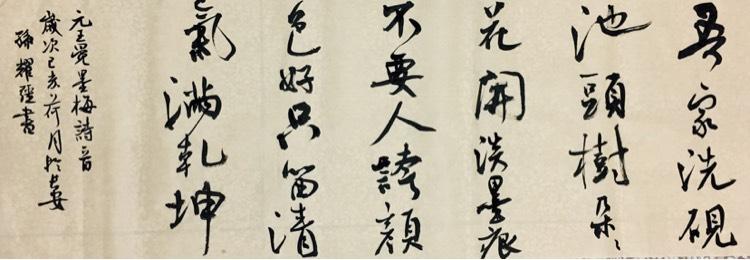 吾家洗硯
池頭樹朵〻
花開淡墨痕
不要人誇顏
色好只留清
氣滿乾坤
元王冕墨梅詩一首
歲次己亥荷月於長安
孫耀
書